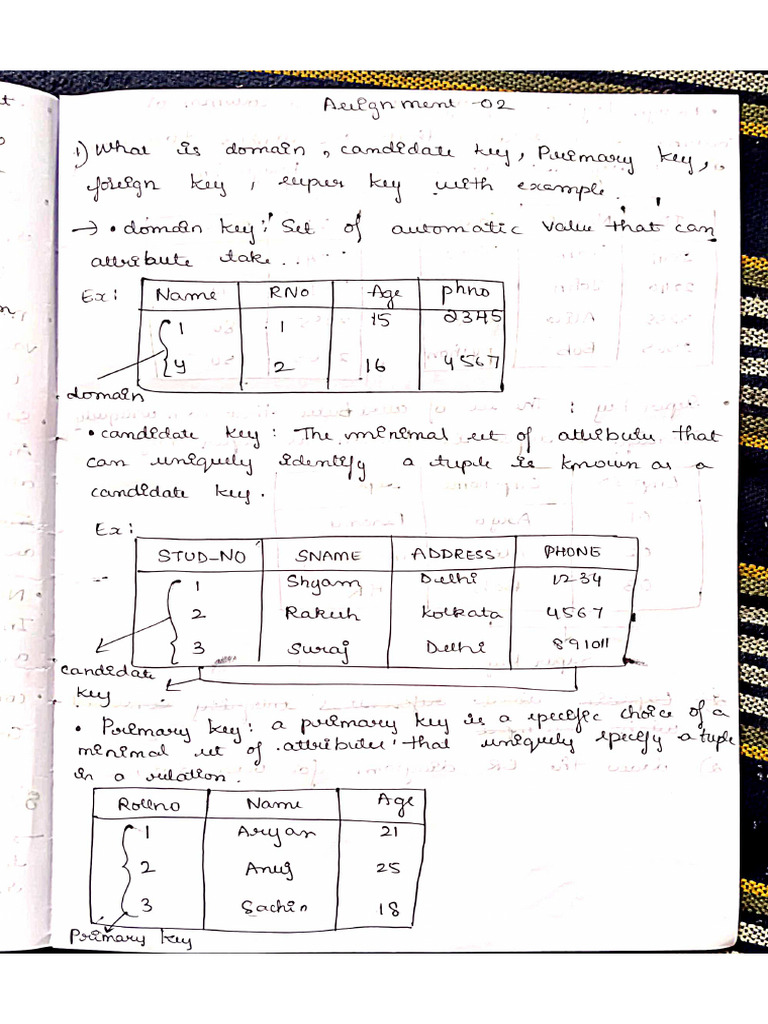 Assignment -02
1) What is domain, candidate key, Primary key,
foreign key, super key with example.
→ • domain key: Set of automatic value that can
attribute take..
Ex: Name RNo Age phno
1 1 15 2345
y 2 16 4567
domain
• candidate key: The minimal set of attribute that
can uniquely identify a tuple is known as a
candidate key.
Ex:
STUD_NO SNAME ADDRESS PHONE
1 Shyam Delhi 1234
2 Rakesh Kolkata 4567
3 Suraj Delhi 891011
candidate
key
• Primary key: a primary key is a specific choice of a
minimal set of attribute that uniquely specify a tuple
in a relation.
Rollno Name Age
1 Aryan 21
2 Anuj 25
3 Sachin 18
Primary key